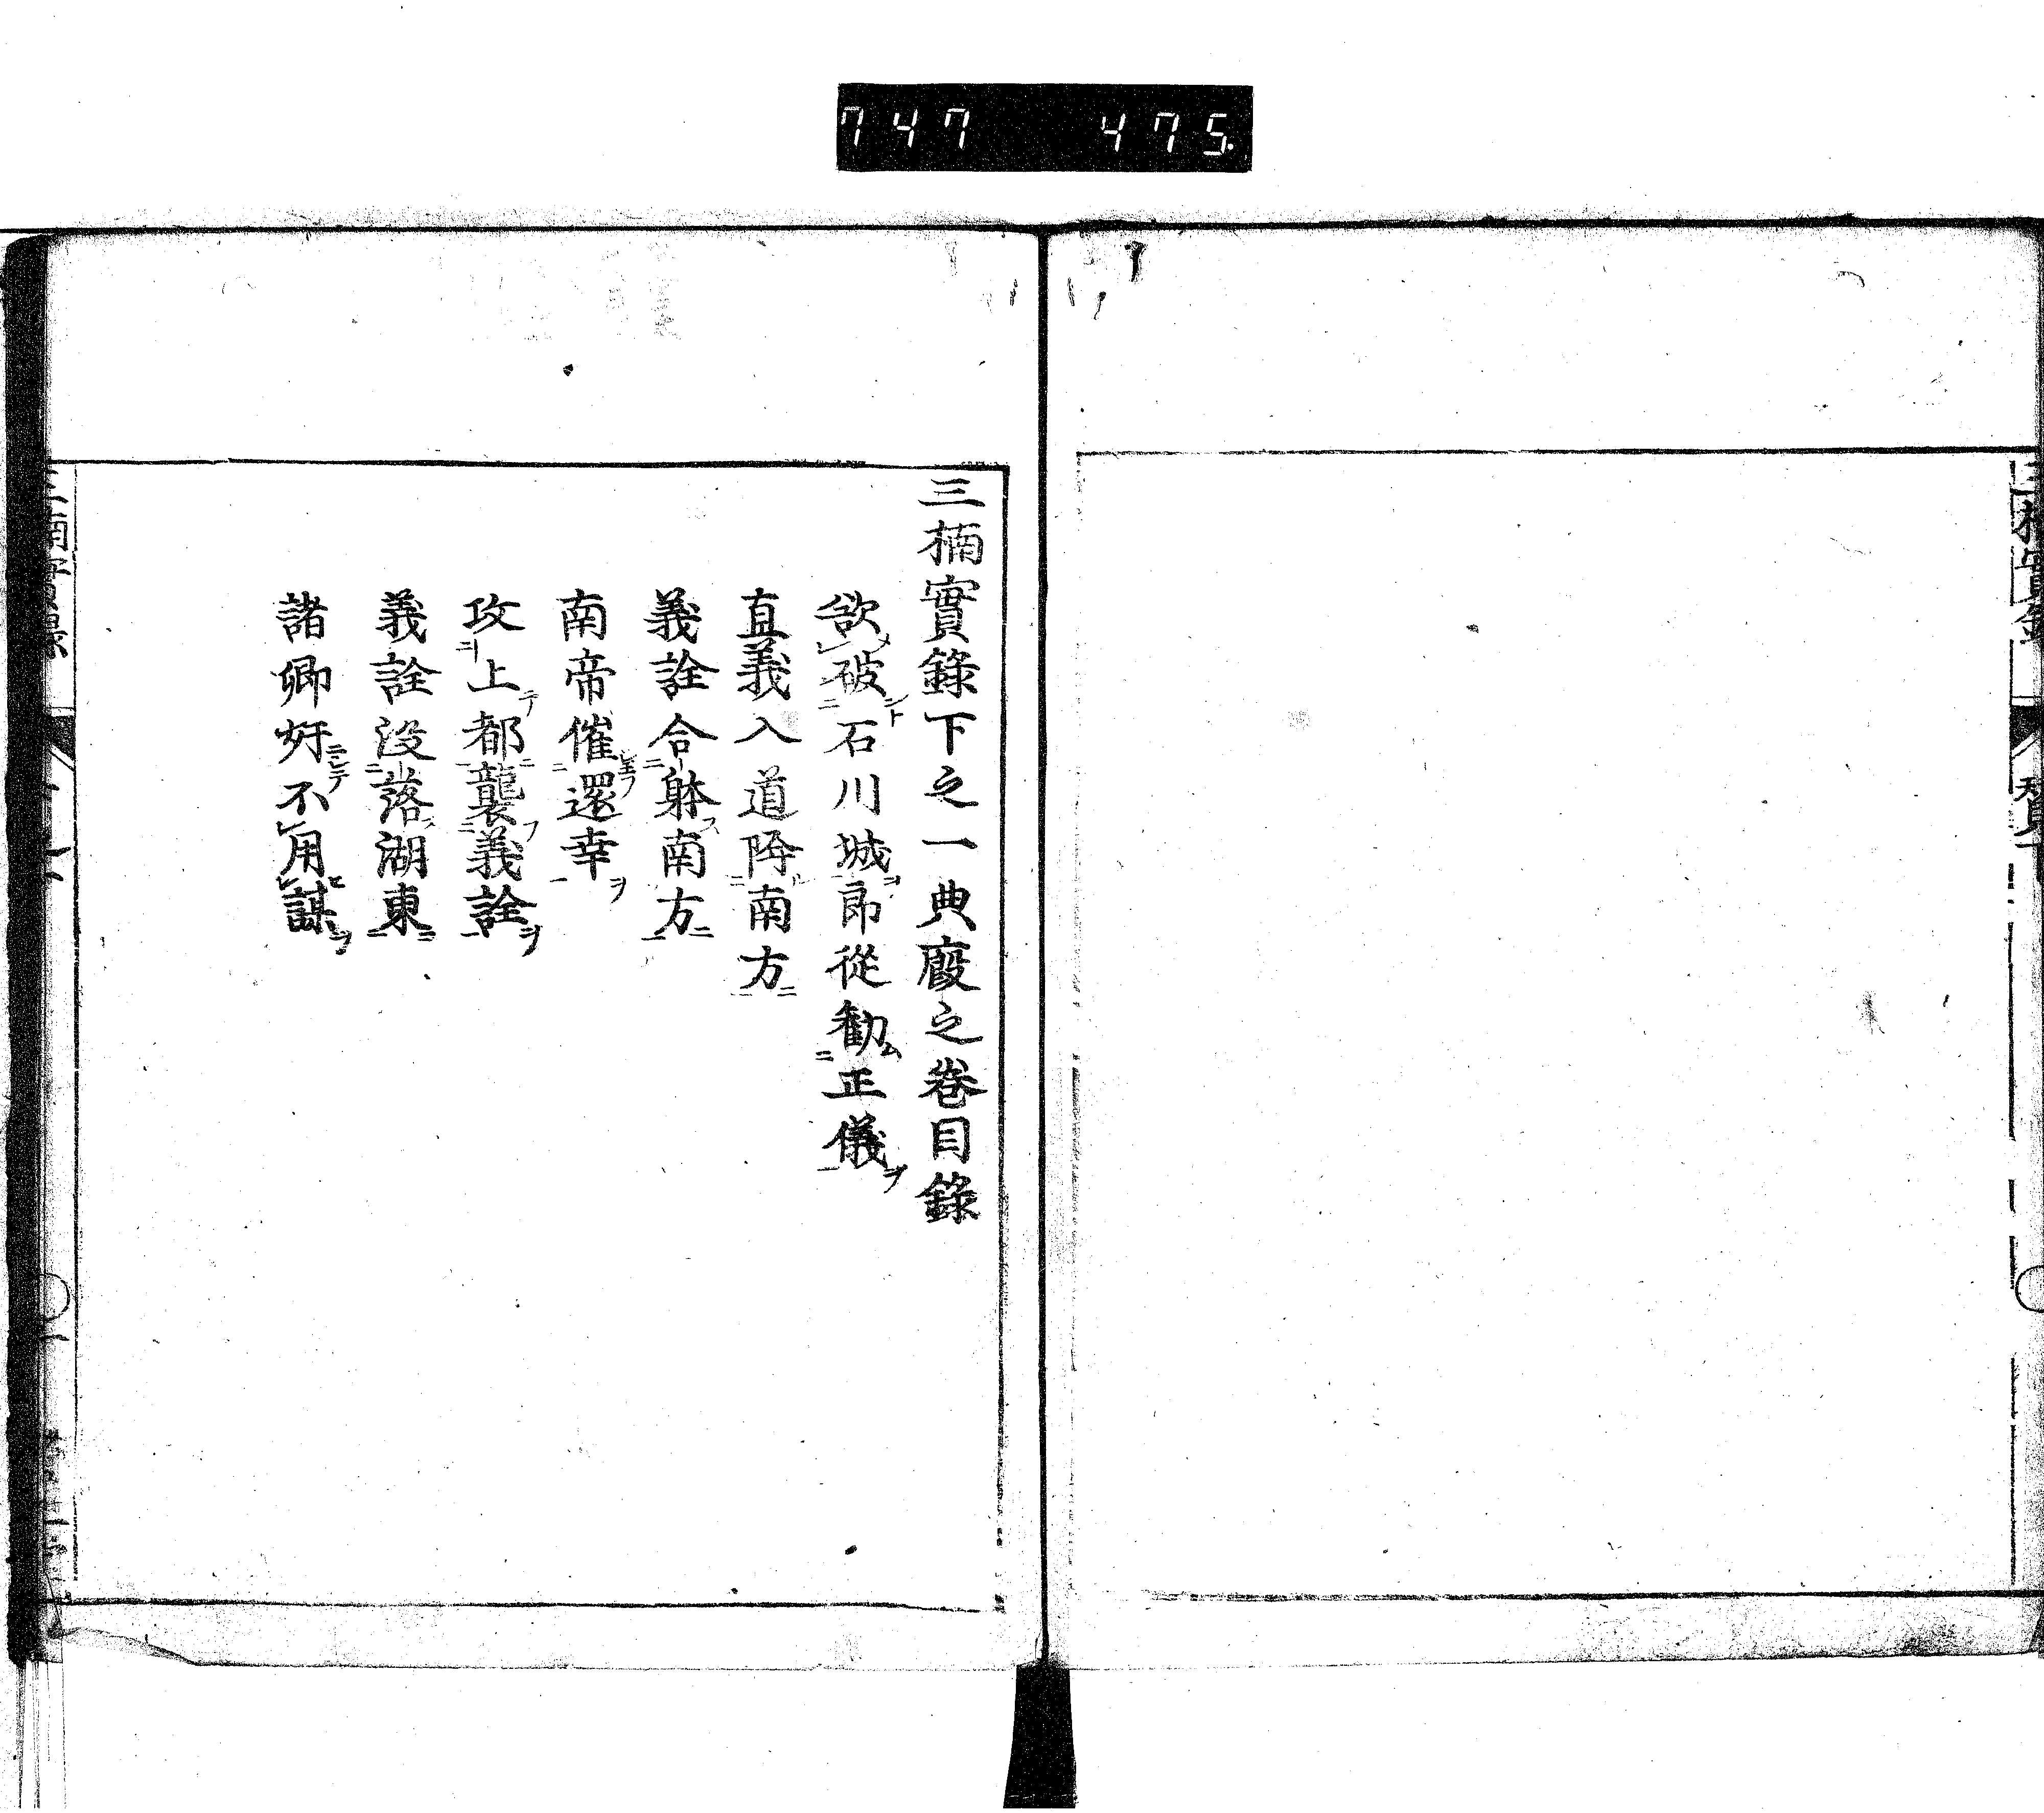 747 475
三楠實錄下之一典廐之卷目錄
欲破石川城郎從勸正儀
直義入道降南方
義詮合躰南方
南帝催還幸
攻上都襲義詮
義詮没落湖東
諸卿奸不用謀
三楠實錄